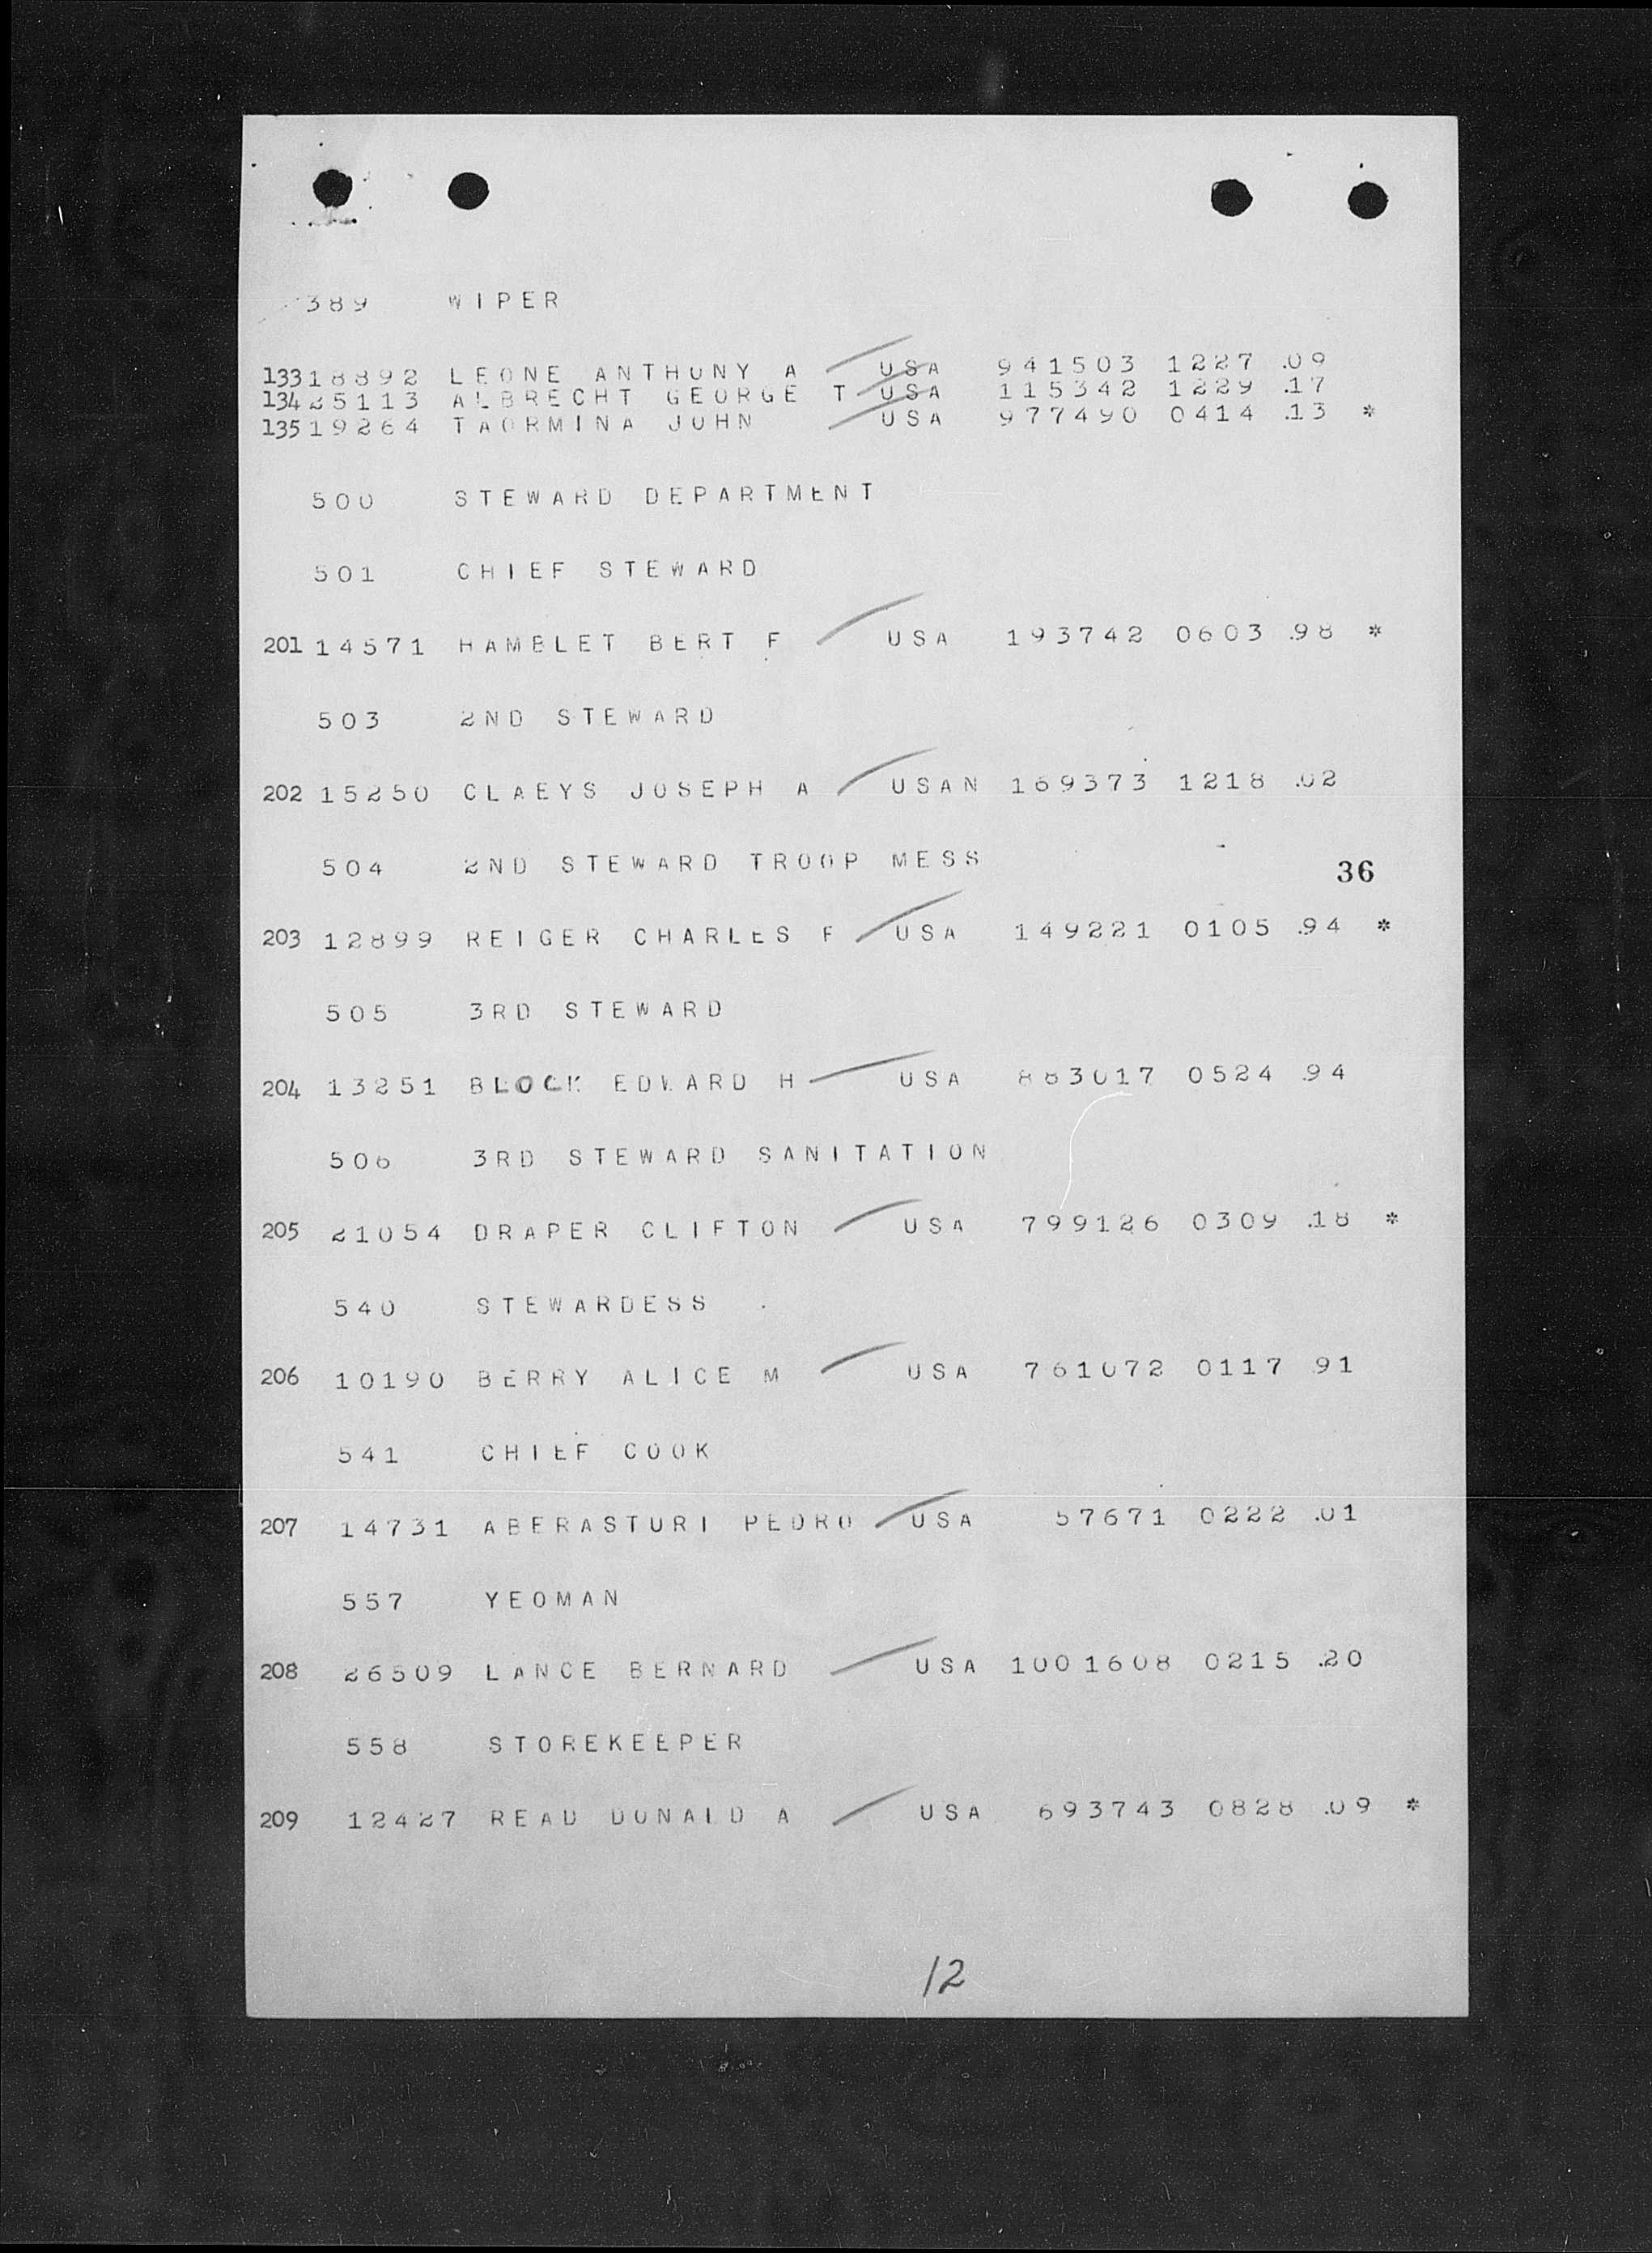 389 WIPER
133 18892 LEONE ANTHONY A USA 941503 1227 .09
134 25113 ALBRECHT GEORGE T USA 115342 1229 .17
135 19264 TAORMINA JOHN USA 977490 0414 .13 *
500 STEWARD DEPARTMENT
501 CHIEF STEWARD
201 14571 HAMBLET BERT F USA 193742 0603 .98 *
503 2ND STEWARD
202 15250 CLAEYS JOSEPH A USAN 169373 1218 .02
504 2ND STEWARD TROOP MESS
36
203 12899 REIGER CHARLES F USA 149221 0105 .94 *
505 3RD STEWARD
204 13251 BLOCK EDWARD H USA 883017 0524 .94
506 3RD STEWARD SANITATION
205 21054 DRAPER CLIFTON USA 799126 0309 .18 *
540 STEWARDESS
206 10190 BERRY ALICE M USA 761072 0117 91
541 CHIEF COOK
207 14731 ABERASTURI PEDRO USA 57671 0222 .01
557 YEOMAN
208 26509 LANCE BERNARD USA 1001608 0215 .20
558 STOREKEEPER
209 12427 READ DONALD A USA 693743 0828 .09 *
12